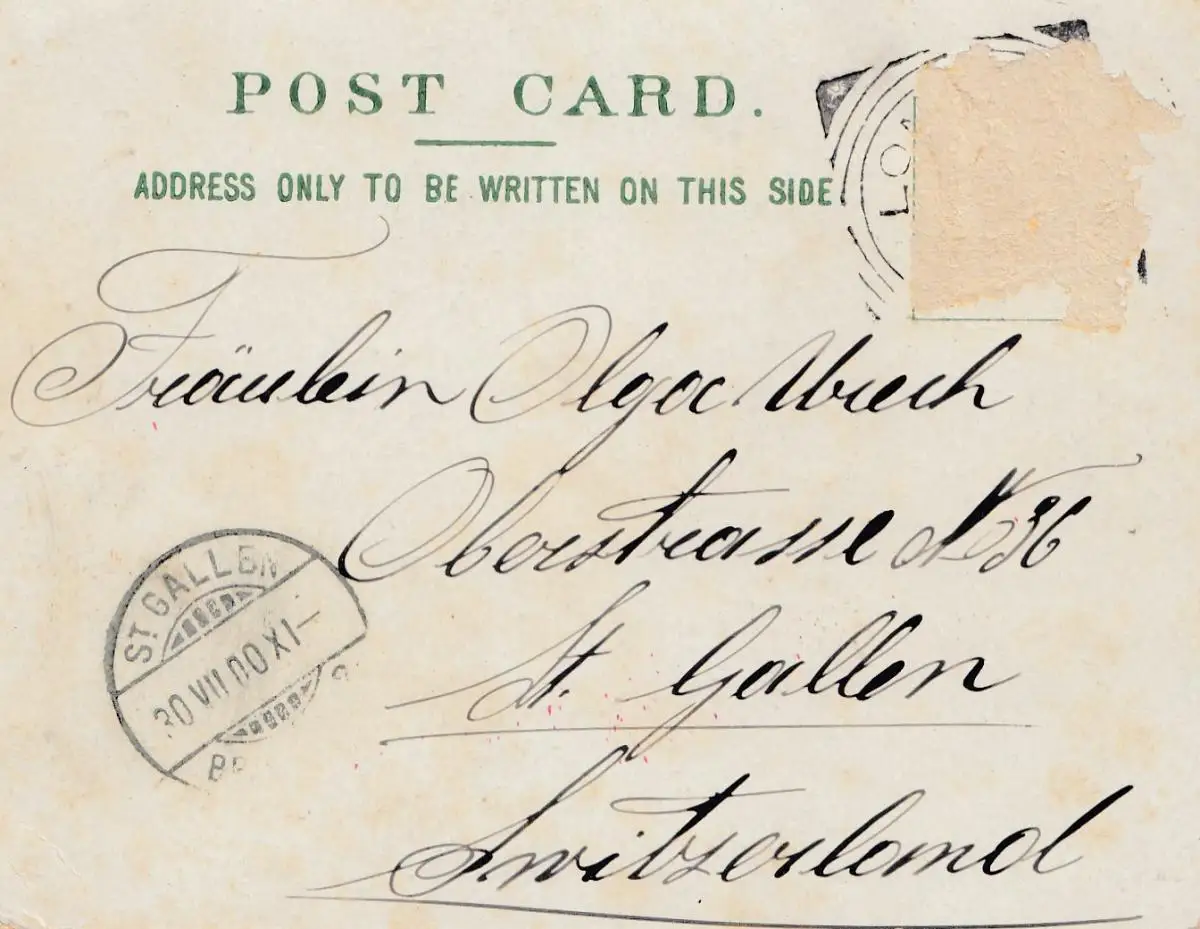 POST CARD.
ADDRESS ONLY TO BE WRITTEN ON THIS SIDE
Fräulein Olga
Oberstrasse No 36
St. Gallen
Switzerland
ST GALLEN
30 VII 00 XI–